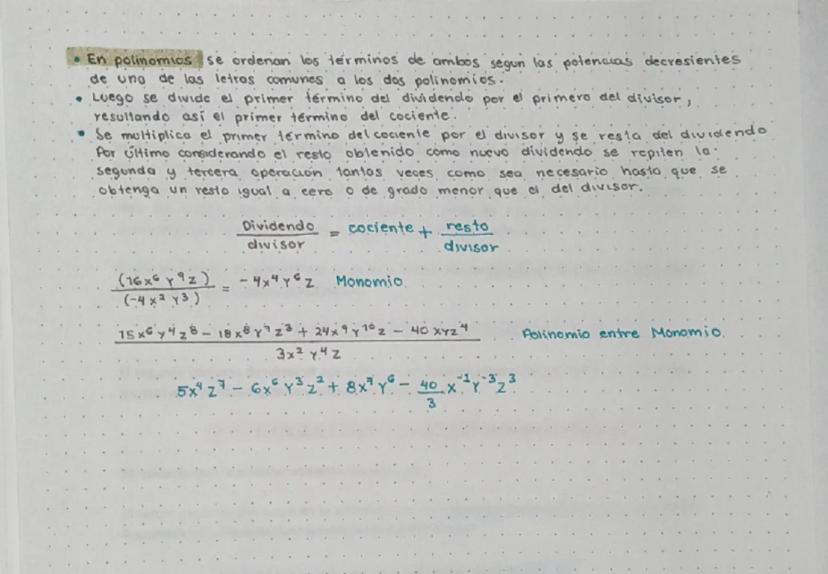 • En polinomios se ordenan los términos de ambos segun las potencias decresientes
de una de las letras comunes a los dos polinomios.
• Luego se divide el primer término del dividendo por el primero del divisor,
resultando así el primer término del cociente.
• Se multiplica el primer término del cociente por el divisor y se resta del dividendo
Por último considerando el resto obtenido como nuevo dividendo se repiten la
segunda y tercera operación tantas veces como sea necesario hasta que se
obtenga un resto igual a cero o de grado menor que el del divisor.
Dividendo/divisor = cociente + resto/divisor
(16x⁶y⁹z)/(-4x²y³) = -4x⁴y⁶z Monomio
15x⁶y⁴z⁸ - 18x⁸y⁷z³ + 24x⁹y¹⁰z - 40xyz⁴/3x²y⁴z Polinomio entre Monomio
5x⁴z⁷ - 6x⁶y³z² + 8x⁷y⁶ - 40/3 x⁻¹y⁻³z³